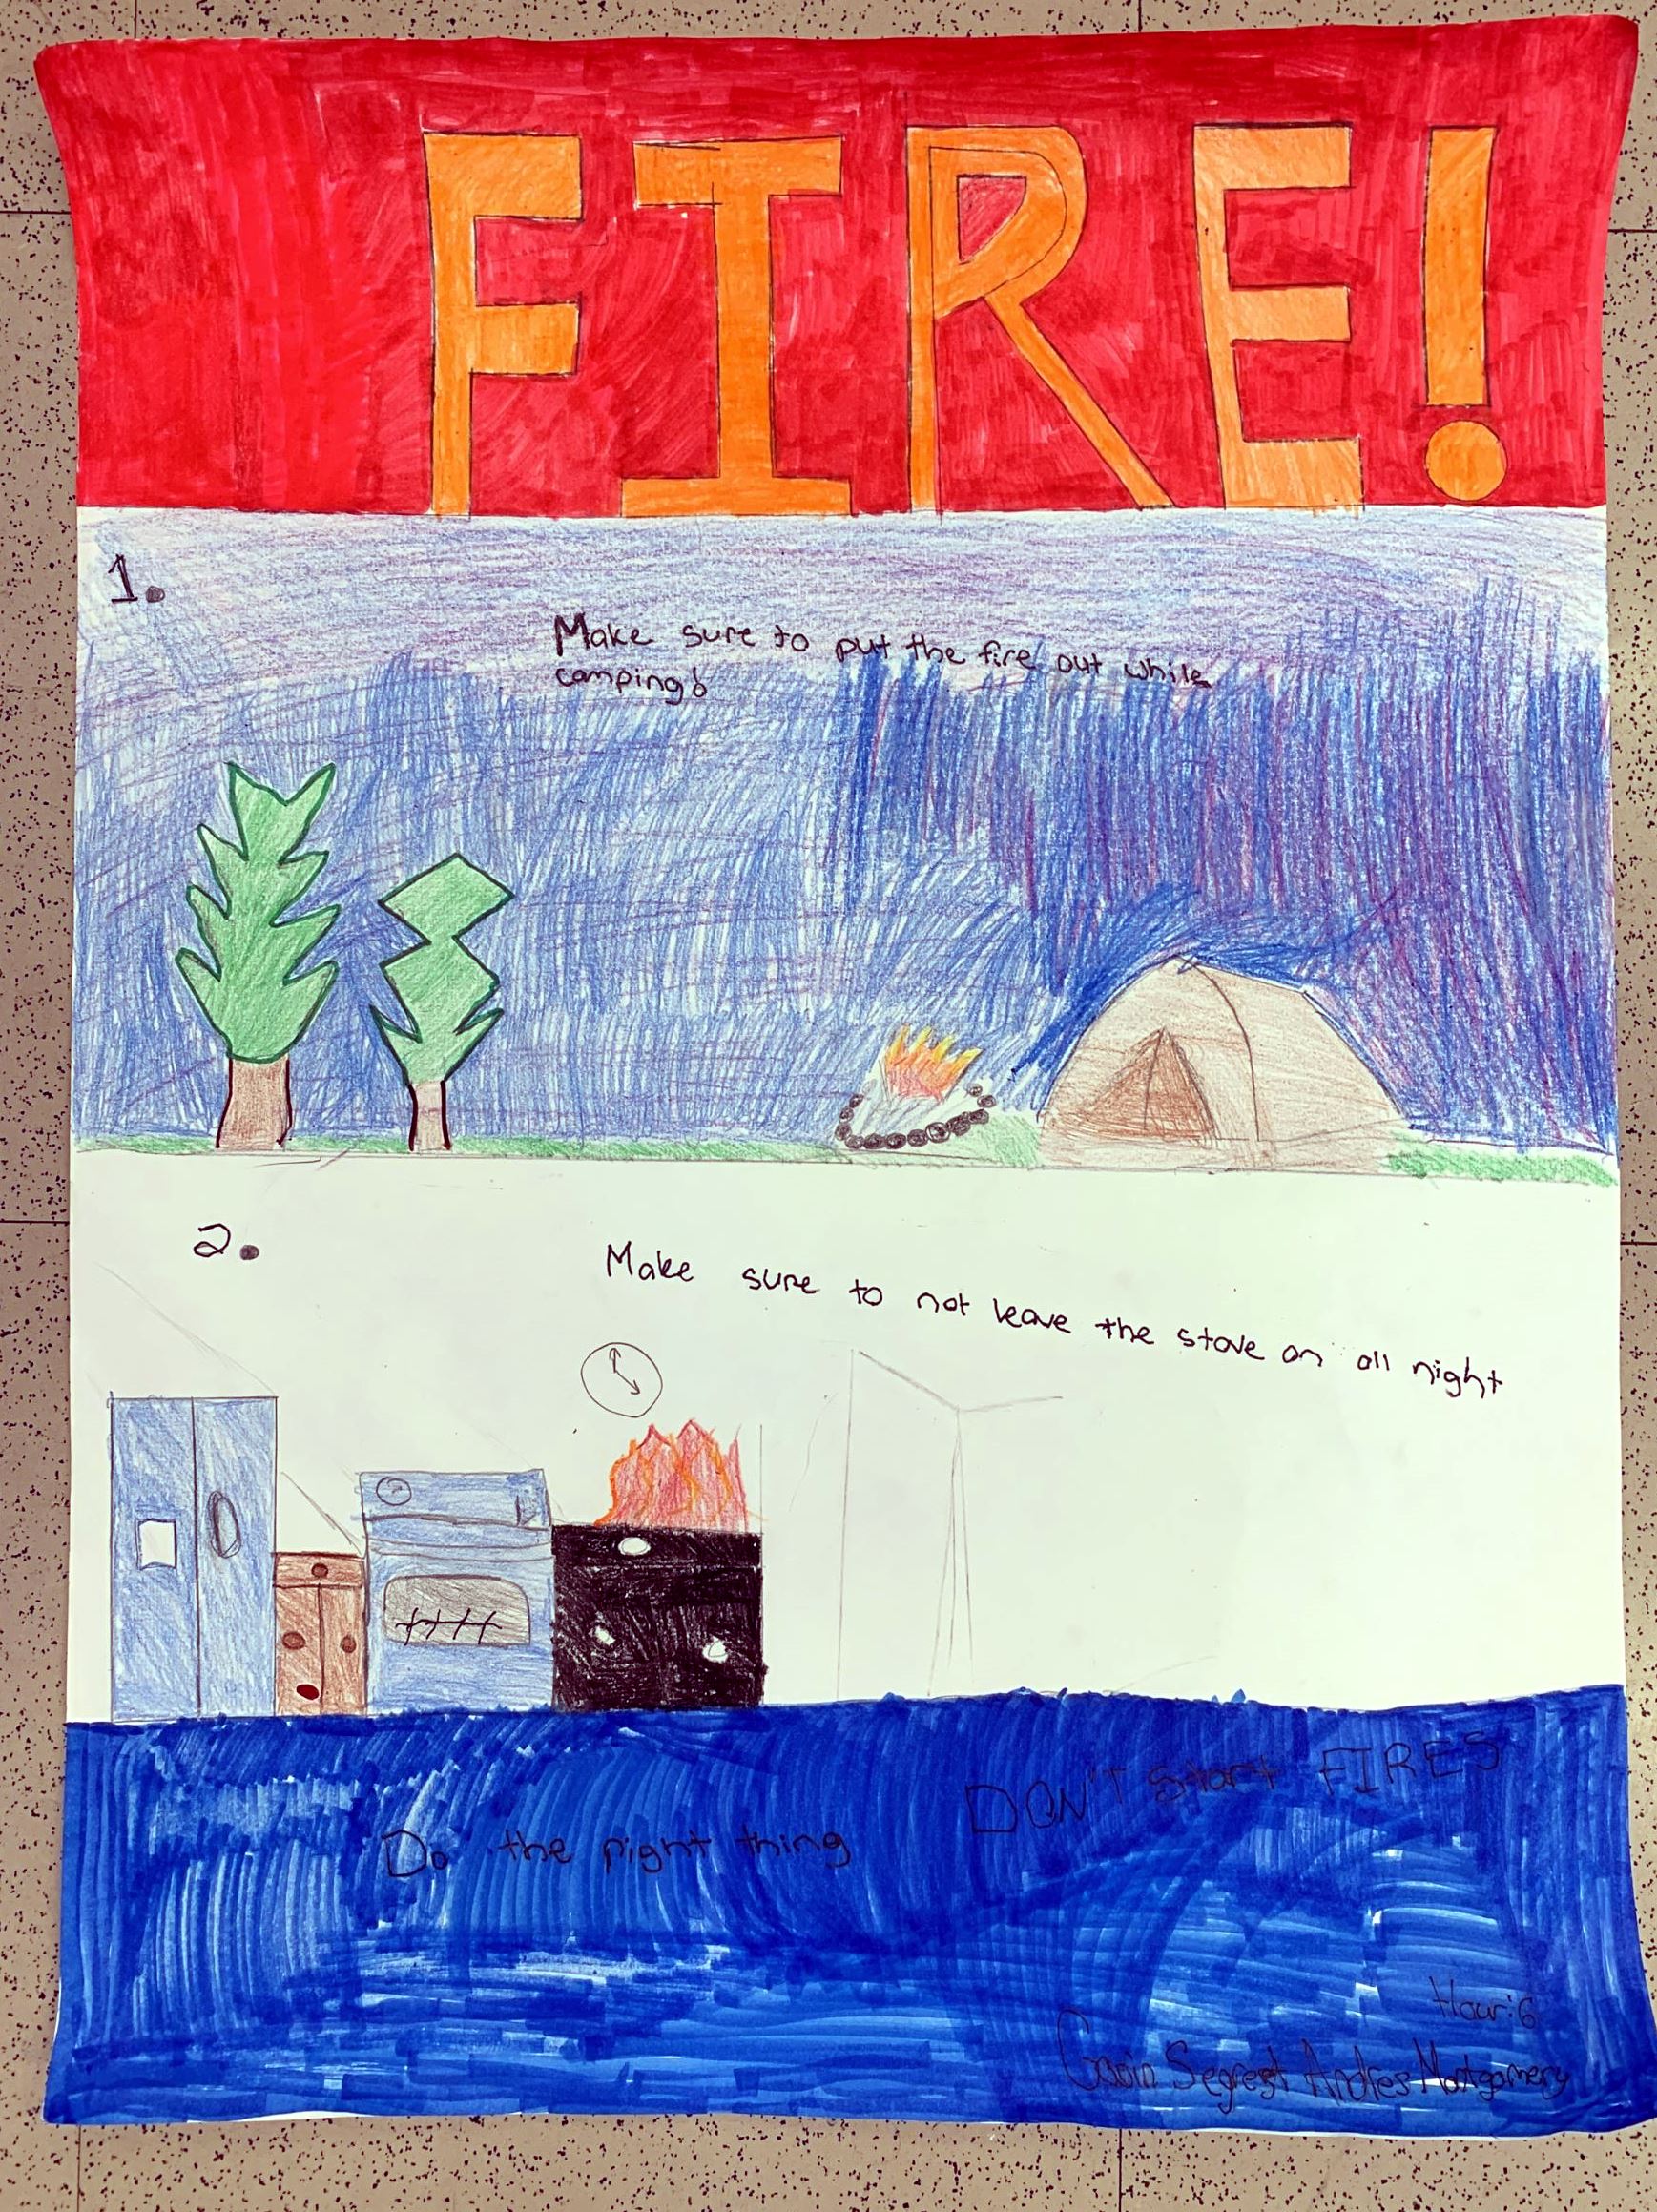 FIRE!
1.
Make sure to put the fire out while
camping!
2.
Make sure to not leave the stove on all night
DON'T Start FIRES
Do the right thing
Hour: 6
Segrest Andres Montgomery